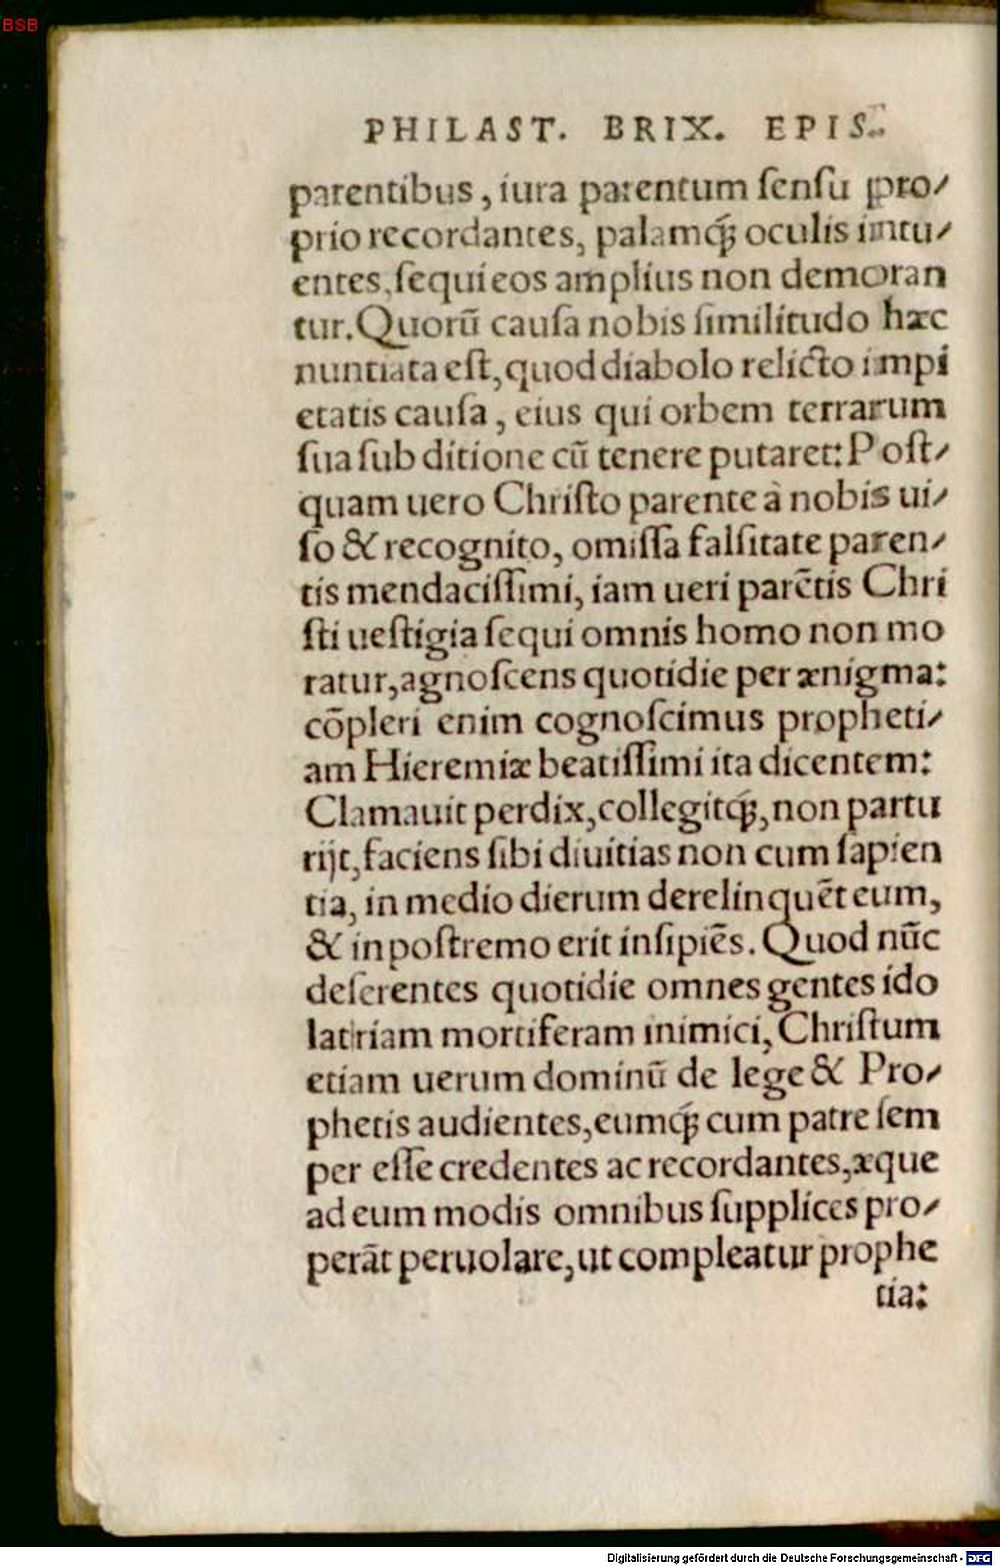 BSB
PHILAST. BRIX. EPIS.
parentibus, iura parentum ſenſu pro/
prio recordantes, palamq́ꝫ oculis intu/
entes, ſequi eos amplius non demoran
tur. Quorū cauſa nobis ſimilitudo hæc
nuntiata eſt, quod diabolo relicto impi
etatis cauſa, eius qui orbem terrarum
ſua ſub ditione cū tenere putaret: Poſt/
quam uero Chriſto parente à nobis ui/
ſo & recognito, omiſſa falſitate paren/
tis mendaciſſimi, iam ueri parētis Chri
ſti ueſtigia ſequi omnis homo non mo
ratur, agnoſcens quotidie per ænigma:
cōpleri enim cognoſcimus propheti/
am Hieremiæ beatiſſimi ita dicentem:
Clamauit perdix, collegitq́ꝫ, non partu
rijt, faciens ſibi diuitias non cum ſapien
tia, in medio dierum derelinquēt eum,
& in poſtremo erit inſipiēs. Quod nūc
deſerentes quotidie omnes gentes ido
latriam mortiferam inimici, Chriſtum
etiam uerum dominū de lege & Pro/
phetis audientes, eumq́ꝫ cum patre ſem
per eſſe credentes ac recordantes, æque
ad eum modis omnibus ſupplices pro/
perāt peruolare, ut compleatur prophe
tia:
Digitalisierung gefördert durch die Deutsche Forschungsgemeinschaft - DFG